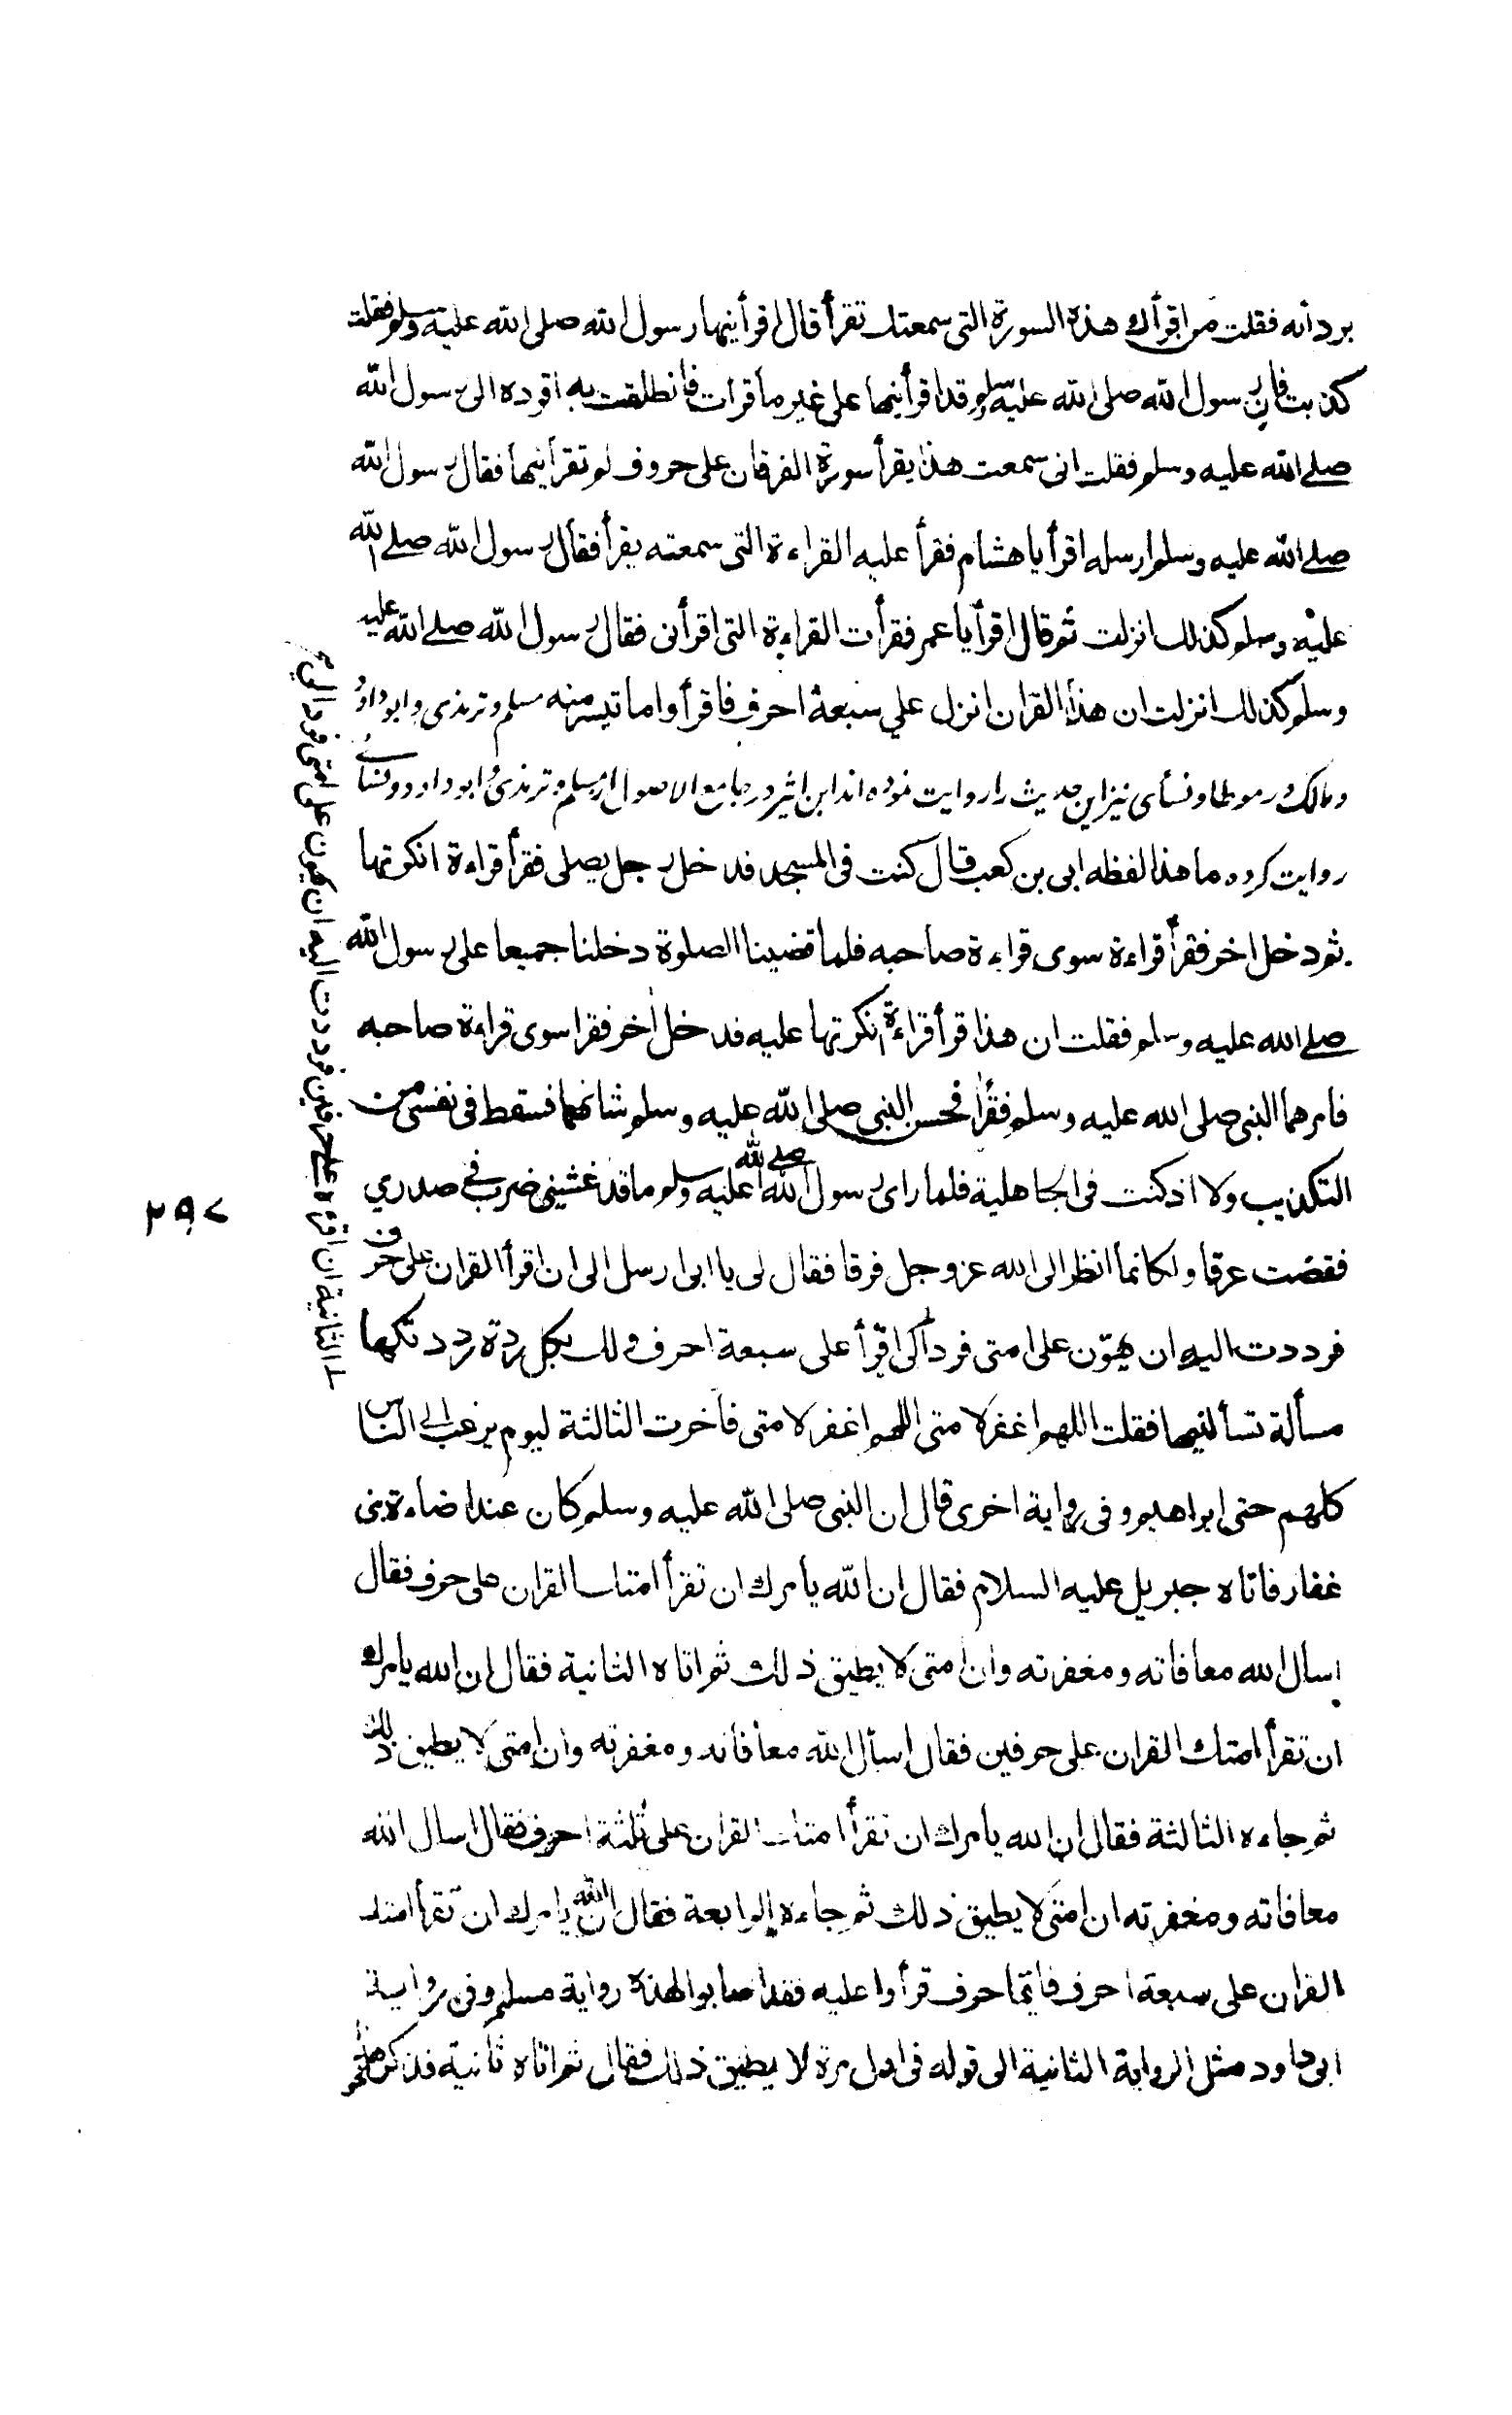 بردائه فقلت من اقرأك هذه السورة التي سمعتك تقرأ قال اقرأنيها رسول الله صلى الله عليه وسلم فقلت
كذبت فان رسول الله صلى الله عليه وسلم قد اقرأنيها على غير ما قرات فانطلقت به اقوده الى رسول الله
صلے الله عليه وسلم فقلت انى سمعت هذا يقرأ سورة الفرقان على حروف لم تقرأنيها فقال رسول الله
صلے الله عليه وسلم ارسله اقرأ يا هشام فقرأ عليه القراءة التى سمعته يقرأ فقال رسول الله صلے الله
عليه وسلم كذلك انزلت ثم قال اقرأ يا عمر فقرأت القراءة التى اقرأنى فقال رسول الله صلے الله عليه
وسلم كذلك انزلت ان هذا القران انزل علي سبعة احرف فاقرأوا ما تيسر منه مسلم و ترمذى و ابو داؤد
و مالك در موطا و نسأى نيز اين حديث را روايت نموده اند ابن اثير در جامع الاصول از مسلم و ترمذى و ابو داود و نسائے
روايت كرده ما هذا لفظه ابى بن كعب قال كنت فى المسجد فدخل رجل يصلى فقرأ قراءة انكرتها
ثم دخل اخر فقرأ قراءة سوى قراءة صاحبه فلما قضينا الصلوة دخلنا جميعا على رسول الله
صلے الله عليه وسلم فقلت ان هذا قرأ قراءة انكرتها عليه فدخل اخر فقرا سوى قراءة صاحبه
فامرهما النبى صلى الله عليه وسلم فقرأ فحسن النبى صلى الله عليه وسلم شانهما فسقط فى نفسى من
التكذيب ولا اذ كنت فى الجاهلية فلما راى رسول الله صلے الله عليه وسلم ما قد غشينى ضرب فے صدري
ففضت عرقا ولكانما انظر الى الله عز وجل فرقا فقال لى يا ابى ارسل الى ان اقرأ القران على حرف
فرددت اليه ان هوّن على امتى فرد الى اقرأ على سبعة احرف ولك بكل ردة رددتكها
مسألة تسألنيها فقلت اللهم اغفر لامتى اللهم اغفر لامتى فاخرت الثالثة ليوم يرغب الے الناس
كلهم حتى ابراهيم و فى رواية اخرى قال ان النبى صلى الله عليه وسلم كان عند اضاءة بنى
غفار فاتاه جبريل عليه السلام فقال ان الله يامرك ان تقرأ امتك القران على حرف فقال
اسال الله معافاته و مغفرته وان امتى لا يطيق ذلك ثم اتاه الثانية فقال ان الله يامرك
ان تقرأ امتك القران على حرفين فقال اسأل الله معافاته و مغفرته وان امتى لا يطيق ذلك
ثم جاءه الثالثة فقال ان الله يامرك ان تقرأ امتك القران على ثلثة احرف فقال اسال الله
معافاته و مغفرته ان امتى لا يطيق ذلك ثم جاءه الرابعة فقال ان الله يامرك ان تقرأ امتك
القران على سبعة احرف فايما حرف قرأوا عليه فقد اصابوا هذه رواية مسلم و فى رواية
ابى داود مثل الرواية الثانية الى قوله فى اول مرة لا يطيق ذلك فقال ثم اتاه ثانية فذكر نحو
الثانية ان اقرءه على حرفين فرددت اليه ان هون على امتى فرد الى
٢٩٧